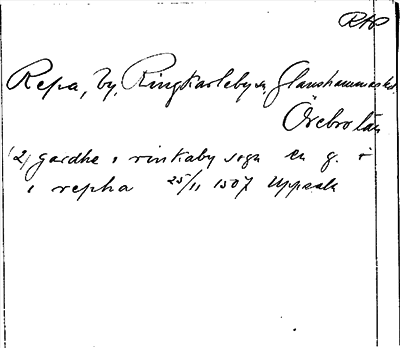 RAP
Repa, by, Ringkarleby sn, Glanshammars hd.
Örebro län
(2) gardhe i rinkaby sogn en g. i
i repha 25/11 1507 Uppsala